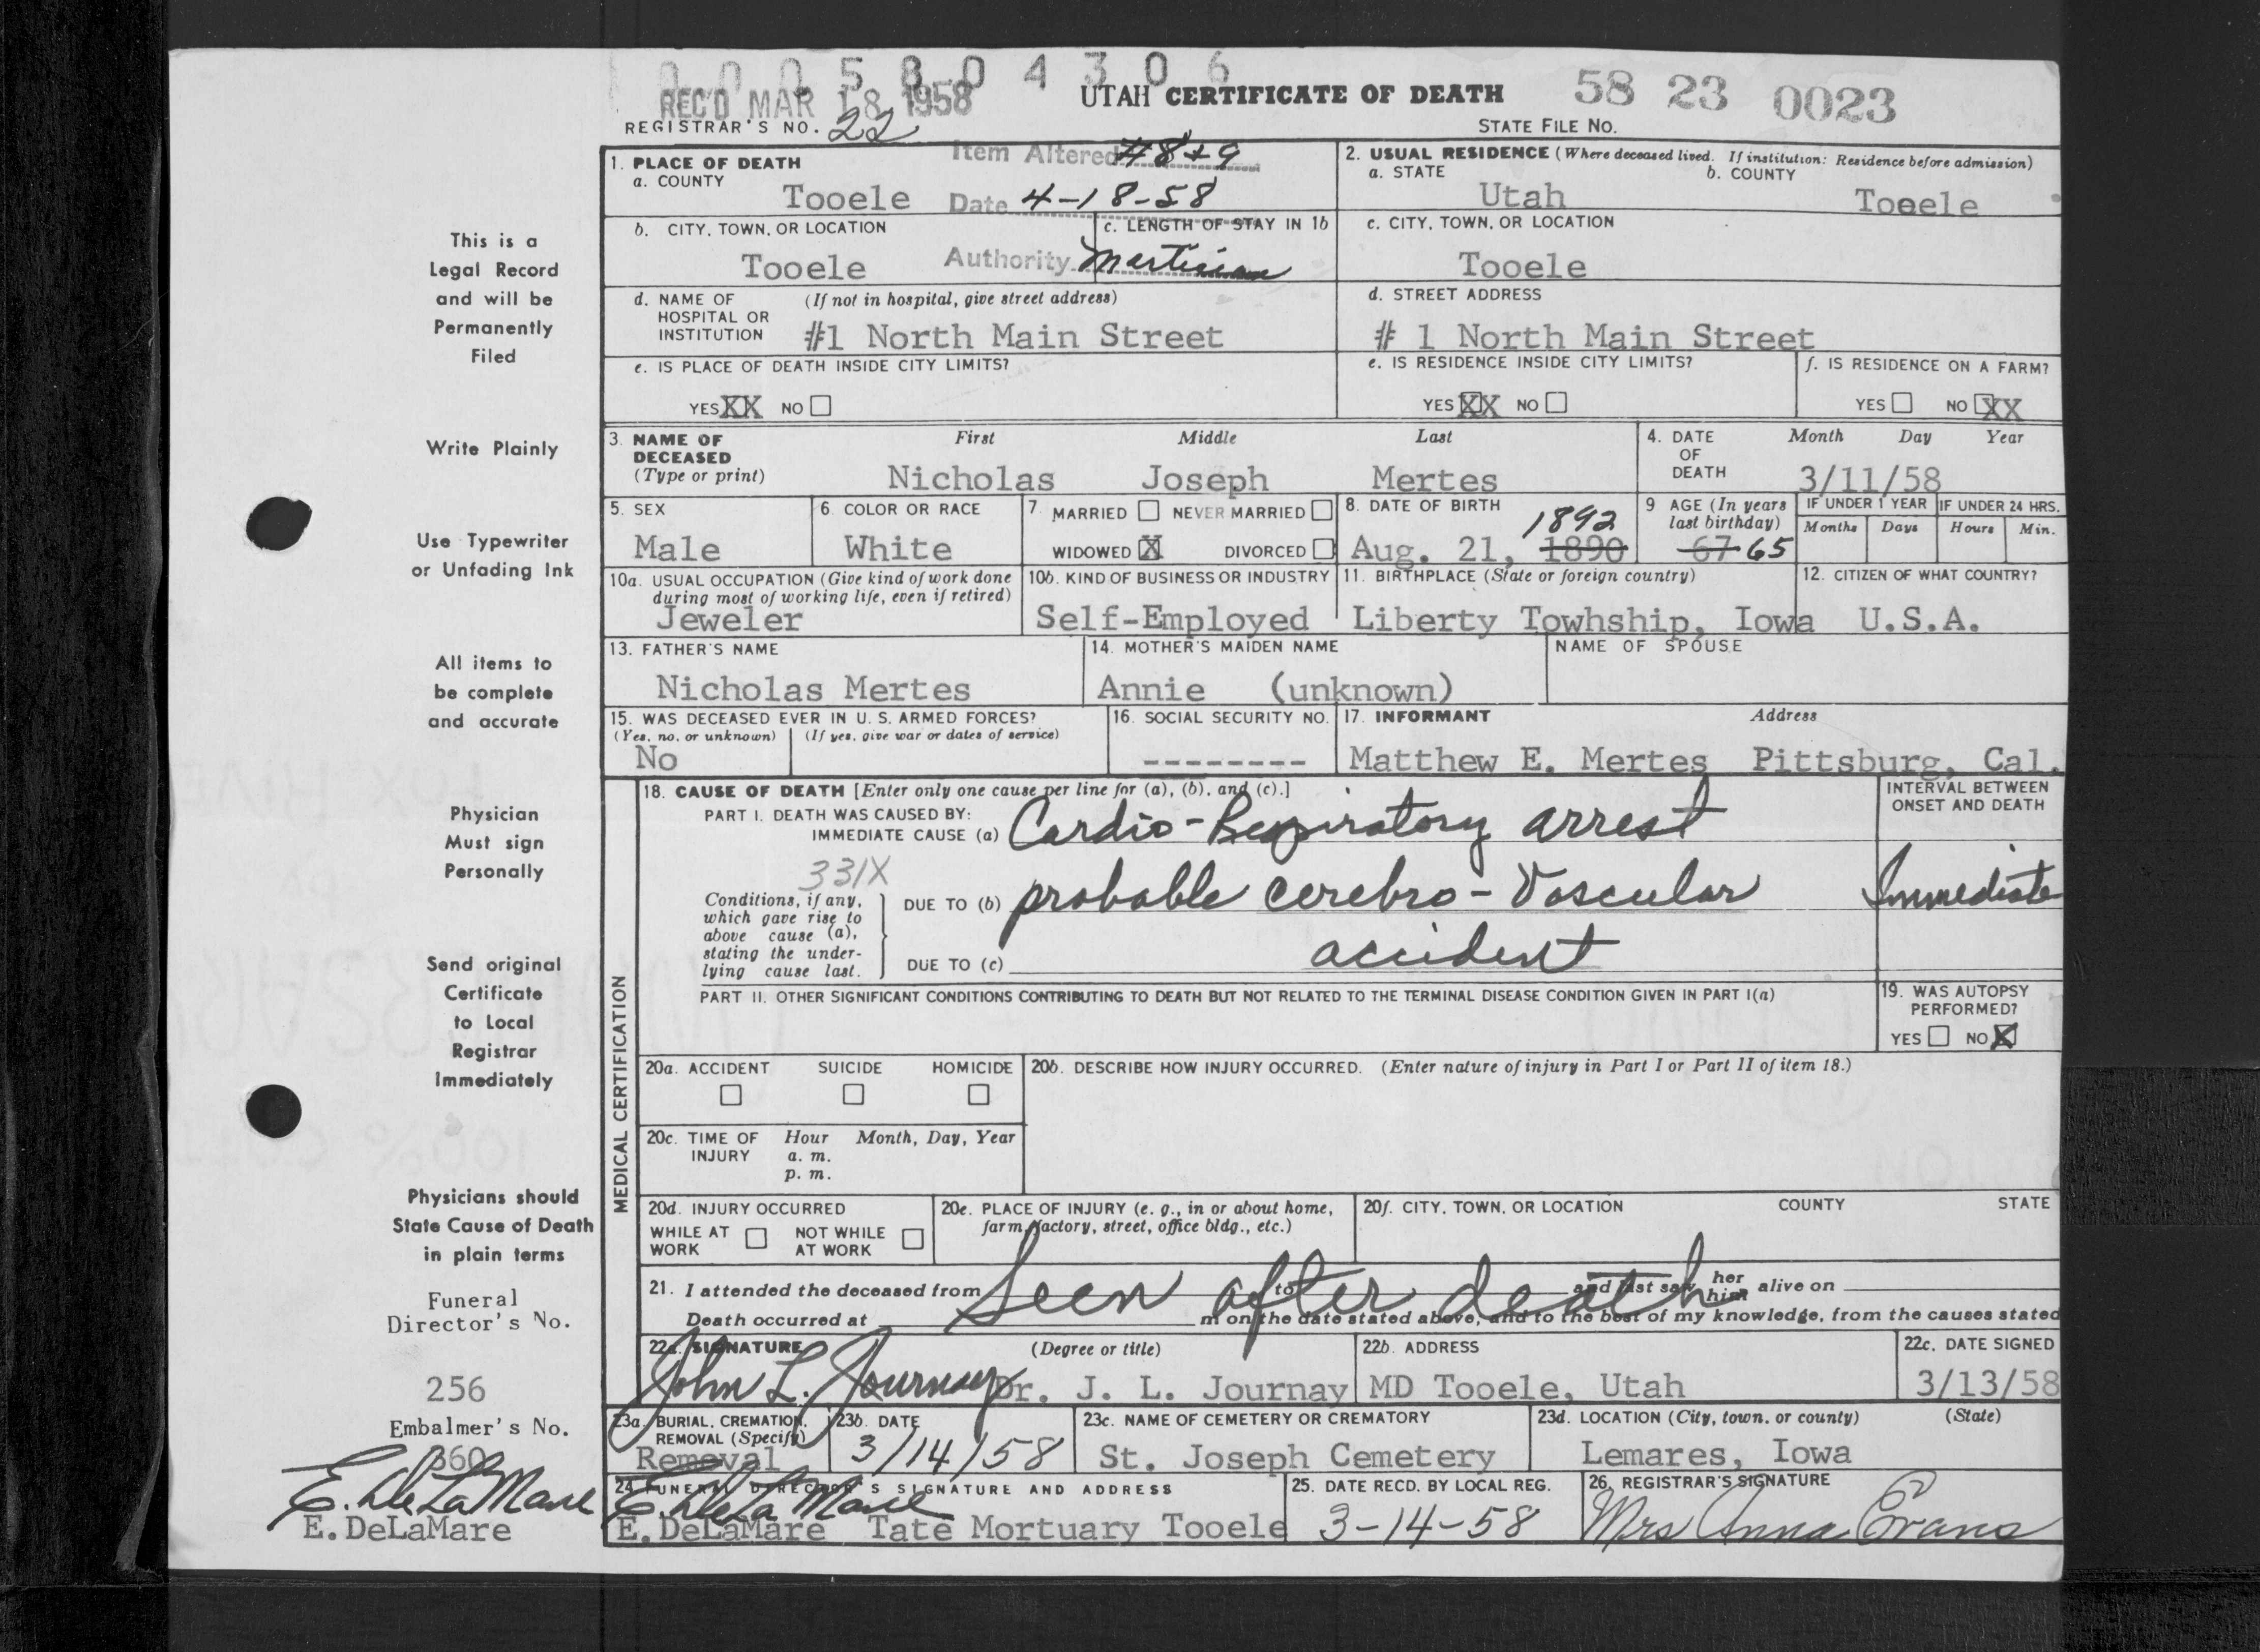 0005804306
REC'D MAR 18 1958 UTAH CERTIFICATE OF DEATH 58 23 0023
REGISTRAR'S NO. 22 STATE FILE NO.
Item Altered #8+9
1. PLACE OF DEATH 2. USUAL RESIDENCE (Where deceased lived. If institution: Residence before admission)
a. COUNTY a. STATE b. COUNTY
Tooele Date 4-18-58 Utah Tooele
b. CITY, TOWN, OR LOCATION c. LENGTH OF STAY IN 1b c. CITY, TOWN, OR LOCATION
Tooele Authority Mortician Tooele
d. NAME OF HOSPITAL OR INSTITUTION (If not in hospital, give street address) d. STREET ADDRESS
#1 North Main Street # 1 North Main Street
e. IS PLACE OF DEATH INSIDE CITY LIMITS? e. IS RESIDENCE INSIDE CITY LIMITS? f. IS RESIDENCE ON A FARM?
YES XX NO YES XX NO YES NO XX
3. NAME OF DECEASED (Type or print) First Middle Last 4. DATE OF DEATH Month Day Year
Nicholas Joseph Mertes 3/11/58
5. SEX 6. COLOR OR RACE 7. MARRIED NEVER MARRIED 8. DATE OF BIRTH 9 AGE (In years last birthday) IF UNDER 1 YEAR IF UNDER 24 HRS.
1892 Months Days Hours Min.
Male White WIDOWED X DIVORCED Aug. 21, 1890 67 65
10a. USUAL OCCUPATION (Give kind of work done during most of working life, even if retired) 10b. KIND OF BUSINESS OR INDUSTRY 11. BIRTHPLACE (State or foreign country) 12. CITIZEN OF WHAT COUNTRY?
Jeweler Self-Employed Liberty Towhship, Iowa U.S.A.
13. FATHER'S NAME 14. MOTHER'S MAIDEN NAME NAME OF SPOUSE
Nicholas Mertes Annie (unknown)
15. WAS DECEASED EVER IN U. S. ARMED FORCES? 16. SOCIAL SECURITY NO. 17. INFORMANT Address
(Yes, no, or unknown) (If yes, give war or dates of service)
No -------- Matthew E. Mertes Pittsburg, Cal.
18. CAUSE OF DEATH [Enter only one cause per line for (a), (b), and (c).] INTERVAL BETWEEN ONSET AND DEATH
PART I. DEATH WAS CAUSED BY:
IMMEDIATE CAUSE (a) Cardio-Respiratory arrest
331X
Conditions, if any, which gave rise to above cause (a), stating the underlying cause last.
DUE TO (b) probable cerebro-Vascular Immediate
DUE TO (c) accident
PART II. OTHER SIGNIFICANT CONDITIONS CONTRIBUTING TO DEATH BUT NOT RELATED TO THE TERMINAL DISEASE CONDITION GIVEN IN PART I(a) 19. WAS AUTOPSY PERFORMED?
YES NO X
MEDICAL CERTIFICATION
20a. ACCIDENT SUICIDE HOMICIDE 20b. DESCRIBE HOW INJURY OCCURRED. (Enter nature of injury in Part I or Part II of item 18.)
20c. TIME OF INJURY Hour Month, Day, Year
a. m.
p. m.
20d. INJURY OCCURRED 20e. PLACE OF INJURY (e. g., in or about home, farm, factory, street, office bldg., etc.) 20f. CITY, TOWN, OR LOCATION COUNTY STATE
WHILE AT WORK NOT WHILE AT WORK
21. I attended the deceased from Seen to after death and last saw her him alive on
Death occurred at m on the date stated above, and to the best of my knowledge, from the causes stated
22a. SIGNATURE (Degree or title) 22b. ADDRESS 22c. DATE SIGNED
John L. Journay Dr. J. L. Journay MD Tooele, Utah 3/13/58
23a. BURIAL, CREMATION, REMOVAL (Specify) 23b. DATE 23c. NAME OF CEMETERY OR CREMATORY 23d. LOCATION (City, town, or county) (State)
Removal 3/14/58 St. Joseph Cemetery Lemares, Iowa
24 FUNERAL DIRECTOR'S SIGNATURE AND ADDRESS 25. DATE RECD. BY LOCAL REG. 26. REGISTRAR'S SIGNATURE
E. DeLaMare
E. DeLaMare Tate Mortuary Tooele 3-14-58 Mrs Anna Evans
This is a
Legal Record
and will be
Permanently
Filed
Write Plainly
Use Typewriter
or Unfading Ink
All items to
be complete
and accurate
Physician
Must sign
Personally
Send original
Certificate
to Local
Registrar
Immediately
Physicians should
State Cause of Death
in plain terms
Funeral
Director's No.
256
Embalmer's No.
360
E. DeLaMare
E. DeLaMare